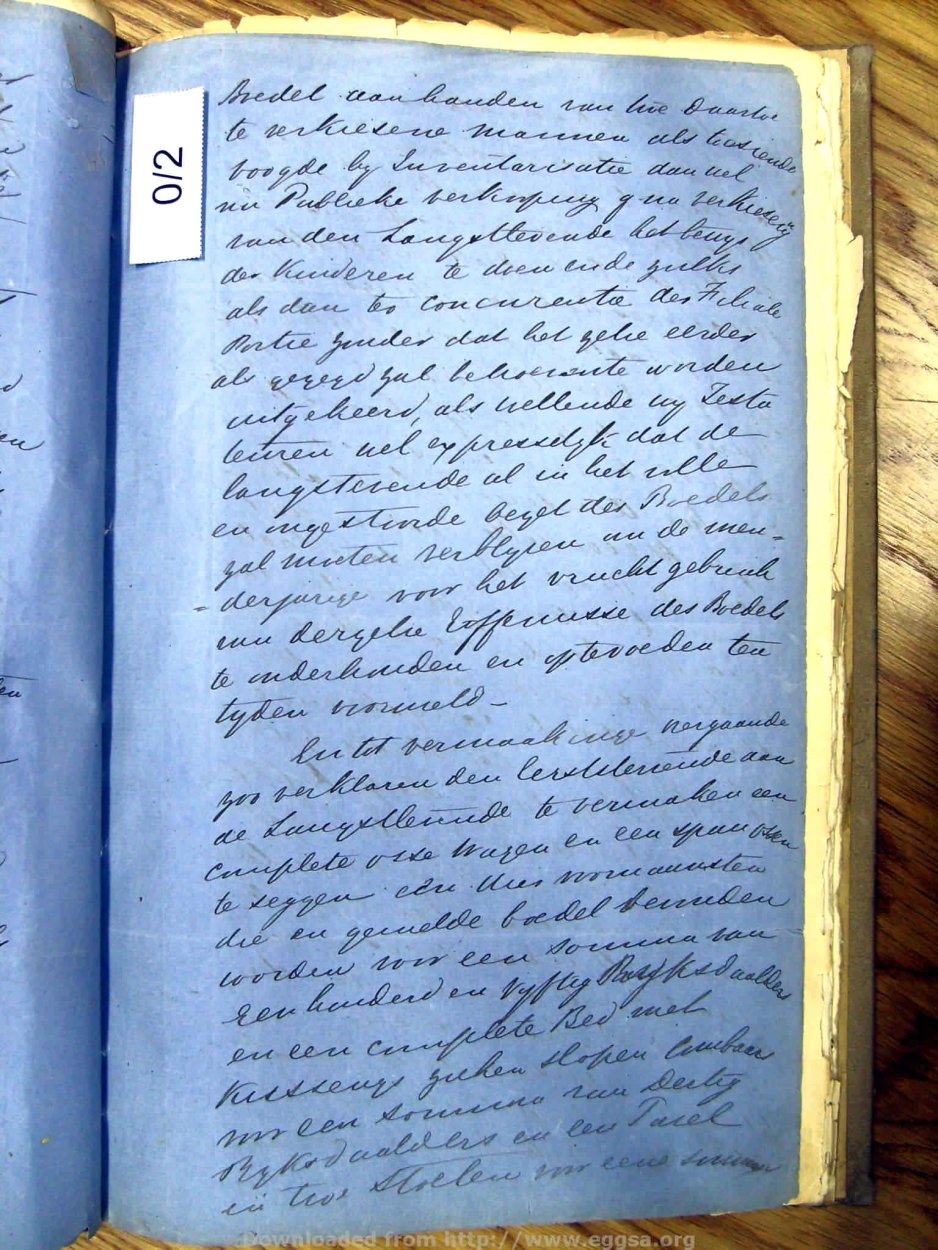 0/2
Boedel aan handen van twe Daartoe
te verkiesene mannen als toesiende
voogde by Inventarisatie dan wel
in Publieke verkoping q na verkiesing
van den Langstlevende het bewys
der Kinderen te doen ende zulks
als dan ter concurentie der Filiale
Portie zonder dat het zelve eerder
als gezegd zal behoevente worden
uitgekeerd, als willende wy Testa
teuren wel expresselyk dat de
langstlevende al in het volle
en ongestoorde bezet des Boedels
zal moeten verblyven om de men-
-derjarige voor het vruchtgebruik
van dezelve Erffenisse des Boedels
te onderhouden en optevoeden ten
tyden voormeld -
En tot vermaakinge overgaande
zoo verklaren den Eerststervende aan
de Langstlevende te vermaken een
complete osse Wagen en een span ossen
te seggen een der voornaamsten
die en gemelde boedel bevinden
worden voor een somma van
Een hunderd en vyftig Ryksdaalders
en een complete Bed met
Kussengs slopen Combaars
voor een somma van Dertig
Ryksdaalders en een Tafel
en twe Stoelen voor eene somma
Downloaded from http://www.eggsa.org